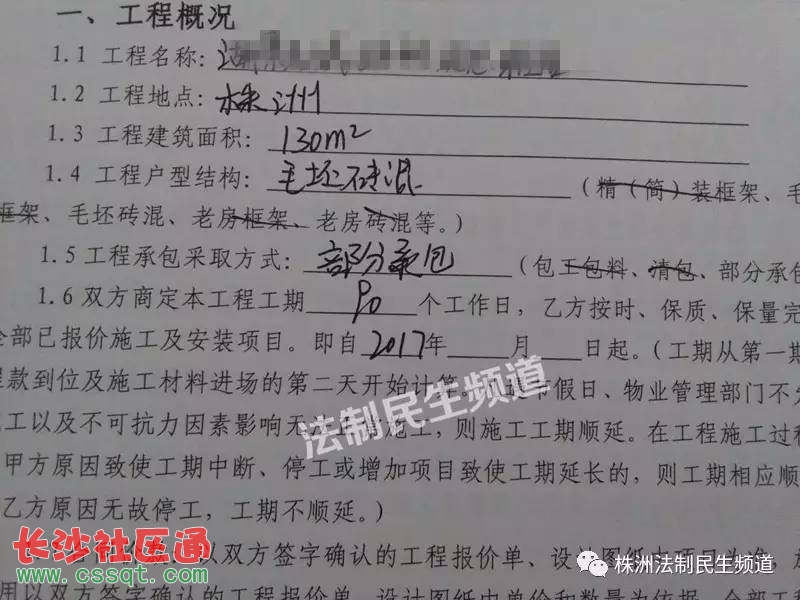 一、工程概况
1.1 工程名称：
1.2 工程地点：株洲
1.3 工程建筑面积：130m²
1.4 工程户型结构：毛坯砖混 （精（简）装框架、毛
框架、毛坯砖混、老房框架、老房砖混等。）
1.5 工程承包采取方式：部分承包 （包工包料、清包、部分承包
1.6 双方商定本工程工期 90 个工作日，乙方按时、保质、保量完
全部已报价施工及安装项目。即自 2017年 月 日起。（工期从第一期
程款到位及施工材料进场的第二天开始计算。 节假日、物业管理部门不允
施工以及不可抗力因素影响无法正常施工，则施工工期顺延。在工程施工过程
甲方原因致使工期中断、停工或增加项目致使工期延长的，则工期相应顺
乙方原因无故停工，工期不顺延。）
以双方签字确认的工程报价单、设计图纸中项目为准，
用以双方签字确认的工程报价单、设计图纸中单价和数量为依据，全部工程
法制民生频道
长沙社区通
www.cssqt.com
株洲法制民生频道